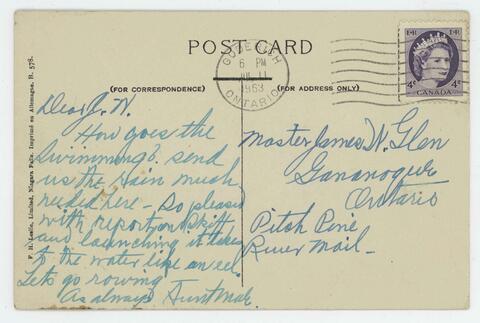 POST CARD
(FOR CORRESPONDENCE)
(FOR ADDRESS ONLY)
F. H. Leslie, Limited, Niagara Falls. Imprimé en Allemagne. R. 578.
GODERICH
6 PM
JUL 11
1963
ONTARIO
E II R
E II R
4¢
CANADA
4¢
Dear J. W.
How goes the
swimming? send
us the rain much
needed here - So pleased
with report on skiff
and launching it takes
to the water like an eel.
Let's go rowing
As always Aunt Mab.
Master James W. Glen
Gananoque
Ontario
Pitch Pine
River Mail -